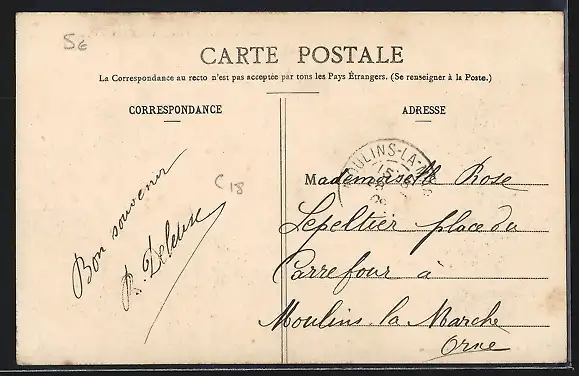 56
CARTE POSTALE
La Correspondance au recto n'est pas acceptée par tous les Pays Étrangers. (Se renseigner à la Poste.)
CORRESPONDANCE
Bon souvenir
C 18
ADRESSE
MOULINS-LA-M
Mademoiselle Rose
Lepeltier place du
Carrefour à
Moulins-la Marche
Orne